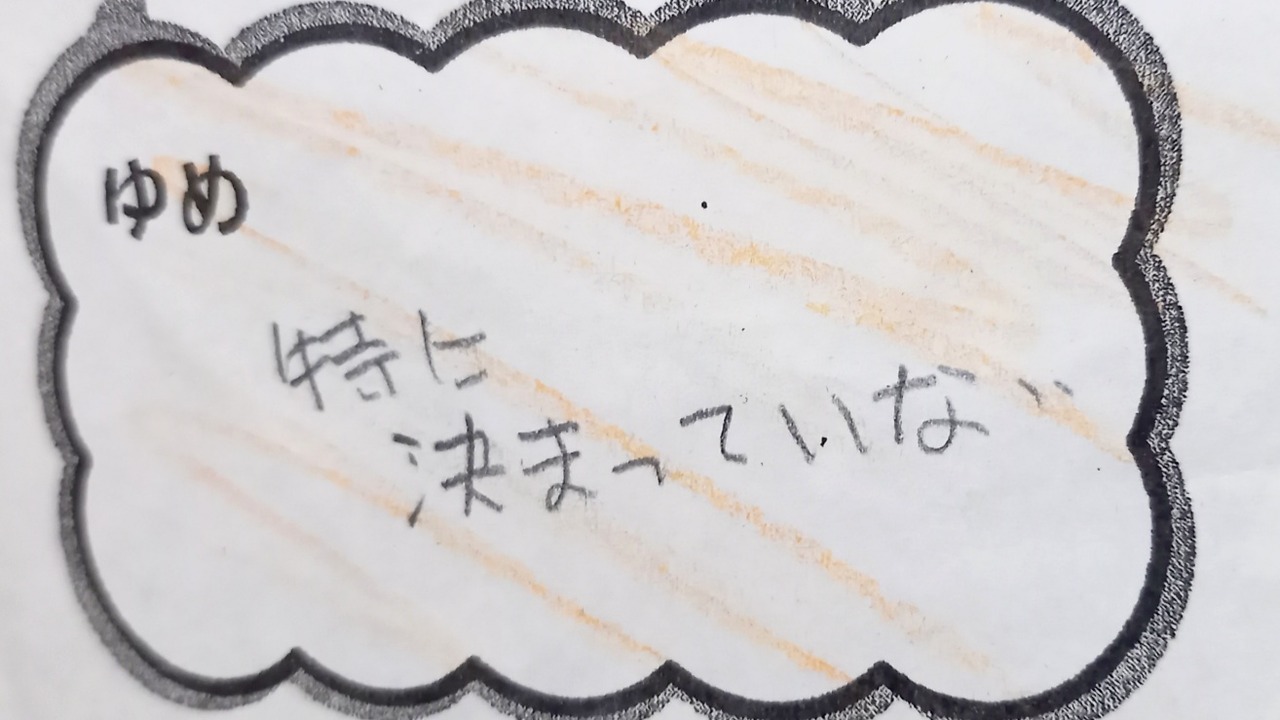 ゆめ
特に
決まっていない